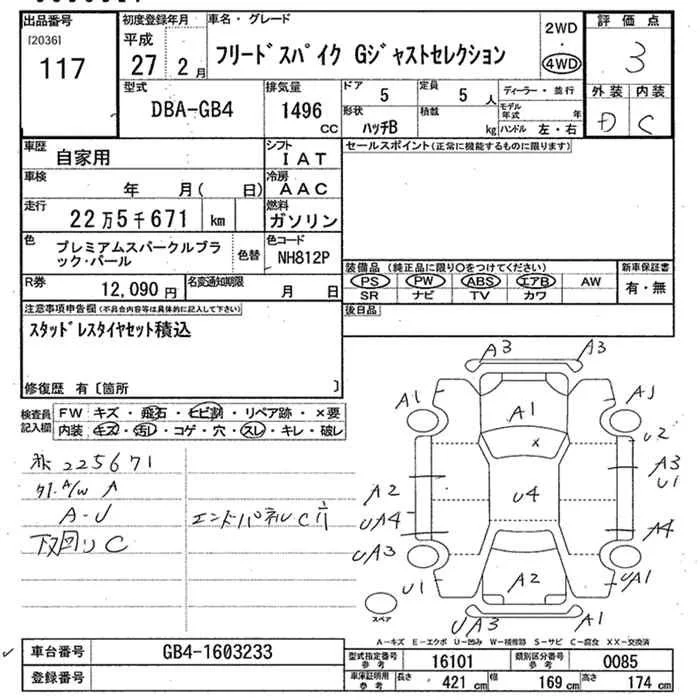 出品番号
[2036]
117
初度登録年月
平成
27 2 月
車名・グレード
フリードスパイク Gジャストセレクション
2WD
・
4WD
評価点
3
外装 内装
D C
型式
DBA-GB4
排気量
1496 CC
ドア
5
定員
5 人
形状
ハッチB
積載
kg
ディーラー・並行
モデル年式 年
ハンドル 左・右
車歴
自家用
シフト
IAT
車検
年 月( 日)
冷房
AAC
走行
22万5千671 km
燃料
ガソリン
色
プレミアムスパークルブラック・パール
色替
色コード
NH812P
R券
12,090 円
名変通知期限
月 日
セールスポイント(正常に機能するものに限ります)
装備品 (純正品に限り○をつけてください)
PS PW ABS エアB AW
SR ナビ TV カワ
新車保証書
有・無
後日品
注意事項申告欄(不具合内容等は具体的に記入して下さい)
スタッドレスタイヤセット積込
修復歴 有〔箇所 〕
検査員記入欄
FW キズ・飛石・ヒビ割・リペア跡・×要
内装 キズ・汚レ・コゲ・穴・スレ・キレ・破レ
225671
A/W A
A-U
下回りC
エンドパネルC
A3 A3
A1 A1 A1
U2
x
A3
U1
A2 U4
UA4 A4
UA3 UA1
U1 A2
UA3 A1
スペア
A-キズ E-エクボ U-凹み W-補修跡 S-サビ C-腐食 XX-交換済
車台番号
GB4-1603233
登録番号
型式指定番号 参考
16101
類別区分番号 参考
0085
車庫証明用 参考
長さ 421 cm 幅 169 cm 高さ 174 cm